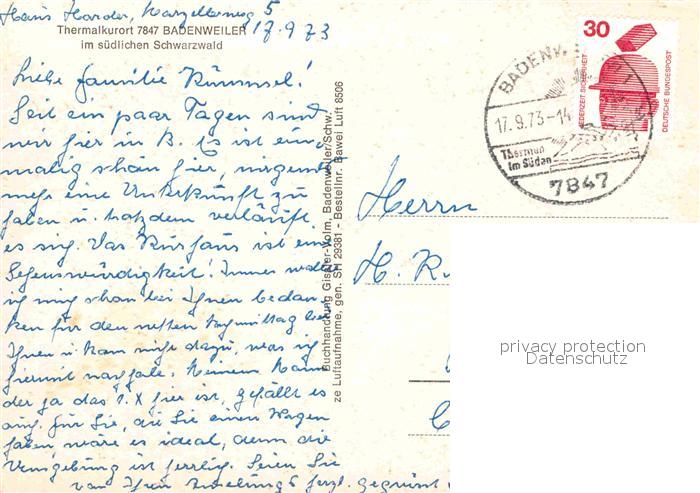 Hans Harder, Karzellenweg 5
17.9.73
Thermalkurort 7847 BADENWEILER
im südlichen Schwarzwald
Liebe Familie Kümmel!
Seit ein paar Tagen sind
wir hier in B. Es ist ein-
malig schön hier, nirgends
mehr eine Unterkunft zu
haben u. trotzdem verläuft
es sich. Das Kurhaus ist eine
Sehenswürdigkeit! Immer wollte
ich mich schon bei Ihnen bedan-
ken für den netten Nachmittag bei
Ihnen u. kam nicht dazu, was ich
hiermit nachhole. Meinem Mann
der ja das 1. X hier ist, gefällt es
auch. Für Sie, die Sie einen Wagen
haben wäre es ideal, denn die
Umgebung ist herrlich. Seien Sie
von Ihren herzl. gegrüßt
Buchhandlung Gissler-Volm, Badenweiler/Schw.
ze Luftaufnahme, gen. SH 29381 - Bestellnr. Bawei Luft 8506
30
JEDERZEIT SICHERHEIT
DEUTSCHE BUNDESPOST
BADENW
17.9.73-14
Thermen
im Süden
7847
Herrn
H. K.
privacy protection
Datenschutz